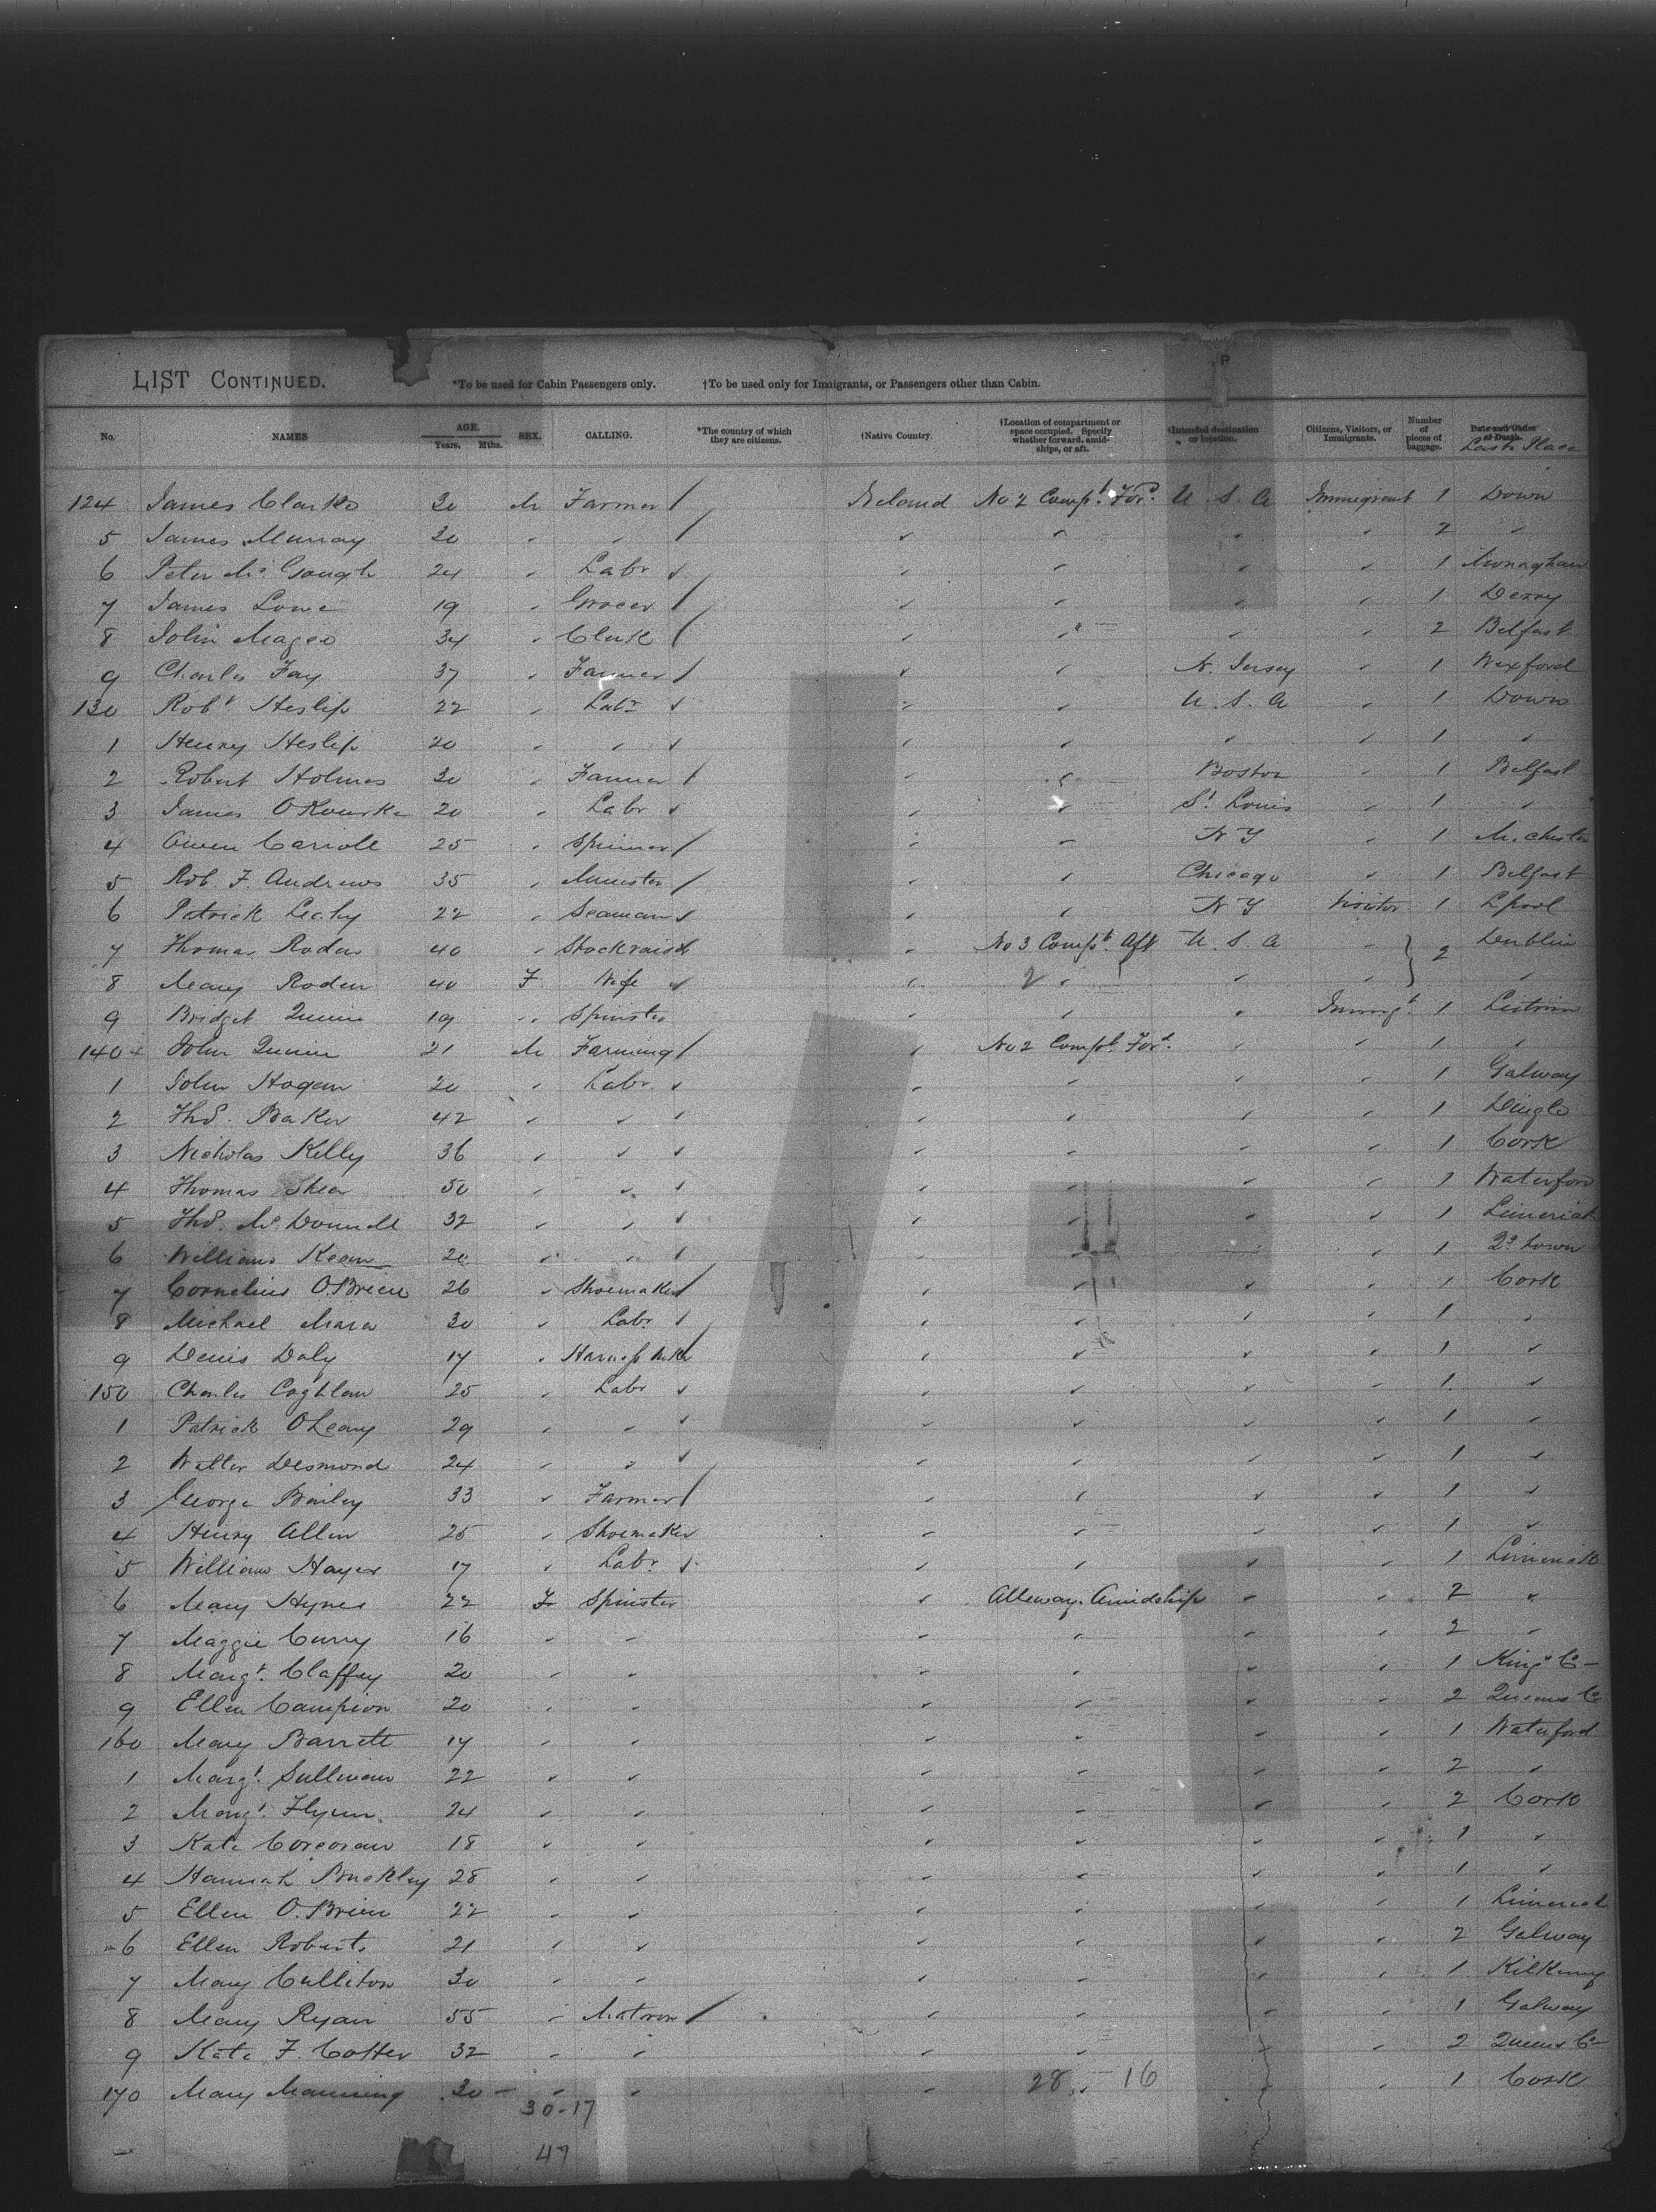 P
LIST CONTINUED. *To be used for Cabin Passengers only. †To be used only for Imigrants, or Passengers other than Cabin.
No. NAMES AGE. Years. Mths. SEX. CALLING. *The country of which they are citizens. †Native Country. †Location of compartment or space occupied. Specify whether forward, amidships, or aft. †Intended destination or location. Citizens, Visitors, or Immigrants. Number of pieces of baggage. Date and Cause of Death. Last Place
124 James Clarke 30 M Farmer / Ireland No 2 Compt. Ford. U. S. A Immigrant 1 Down
5 James Murray 30 " " / " " " " 2 "
6 Peter McGough 24 " Labr ✓ " " " " 1 Monaghan
7 James Lowe 19 " Grocer / " " " " 1 Derry
8 John Magee 34 " Clerk / " " " " 2 Belfast
9 Charles Fay 37 " Farmer / " " N. Jersey " 1 Wexford
130 Robt Heslip 22 " Labr ✓ " " U. S. A " 1 Down
1 Henry Heslip 20 " " ✓ " " " " 1 "
2 Robert Holmes 30 " Farmer / " " Boston " 1 Belfast
3 James O'Rourke 20 " Labr ✓ " " St Louis " 1 "
4 Owen Carroll 25 " Spinner / " " N Y " 1 M.chester
5 Rob. F. Andrews 35 " Minister / " " Chicago " 1 Belfast
6 Patrick Leahy 22 " Seaman ✓ " " N Y Visitor 1 Lpool
7 Thomas Roden 40 " Stockraiser " No 3 Compt. Aft U. S. A " } 2 Dublin
8 Mary Roden 40 F Wife ✓ " " " " "
9 Bridget Quinn 19 " Spinster " " " Immigt. 1 Leitrim
140 John Quinn 21 M Farming / " No 2 Compt. Ford. " " 1 "
1 John Hogan 20 " Labr. ✓ " " " " 1 Galway
2 Thos. Baker 42 " " ✓ " " " " 1 Dingle
3 Nicholas Kelly 36 " " ✓ " " " " 1 Cork
4 Thomas Shea 50 " " ✓ " " " " 1 Waterford
5 Thos. McDonnell 32 " " ✓ " " " " 1 Limerick
6 William Keane 20 " " ✓ " " " " 1 Qs. town
7 Cornelius O.Brien 26 " Shoemaker / " " " " 1 Cork
8 Michael Mara 30 " Labr ✓ " " " " 1 "
9 Denis Daly 17 " Harness Mker " " " " 1 "
150 Charles Coghlan 25 " Labr ✓ " " " " 1 "
1 Patrick OLeary 29 " " ✓ " " " " 1 "
2 Walter Desmond 24 " " ✓ " " " " 1 "
3 George Bailey 33 " Farmer / " " " " 1 "
4 Henry Allen 25 " Shoemaker " " " " 1 "
5 William Hayes 17 " Labr. ✓ " " " " 1 Limerick
6 Mary Hynes 22 F Spinster " Alleway. Amidship " " 2 "
7 Maggie Curry 16 " " " " " " 2 "
8 Margt. Claffey 20 " " " " " " 1 Kings Co
9 Ellen Campion 20 " " " " " " 2 Queens Co
160 Mary Barrett 17 " " " " " " 1 Waterford
1 Margt. Sullivan 22 " " " " " " 2 "
2 Margt. Flynn. 24 " " " " " " 2 Cork
3 Kate Corcoran 18 " " " " " " 1 "
4 Hannah Buckley 28 " " " " " " 1 "
5 Ellen O.Brien 22 " " " " " " 1 Limerick
6 Ellen Roberts 21 " " " " " " 2 Galway
7 Mary Culliton 30 " " " " " " 1 Kilkenny
8 Mary Ryan 55 " Matron / " " " " 1 Galway
9 Kate F. Cotter 32 " " " " " " 2 Queens Co
170 Mary Manning 30 " " " 28 " 16 " " 1 Cork
30-17
47